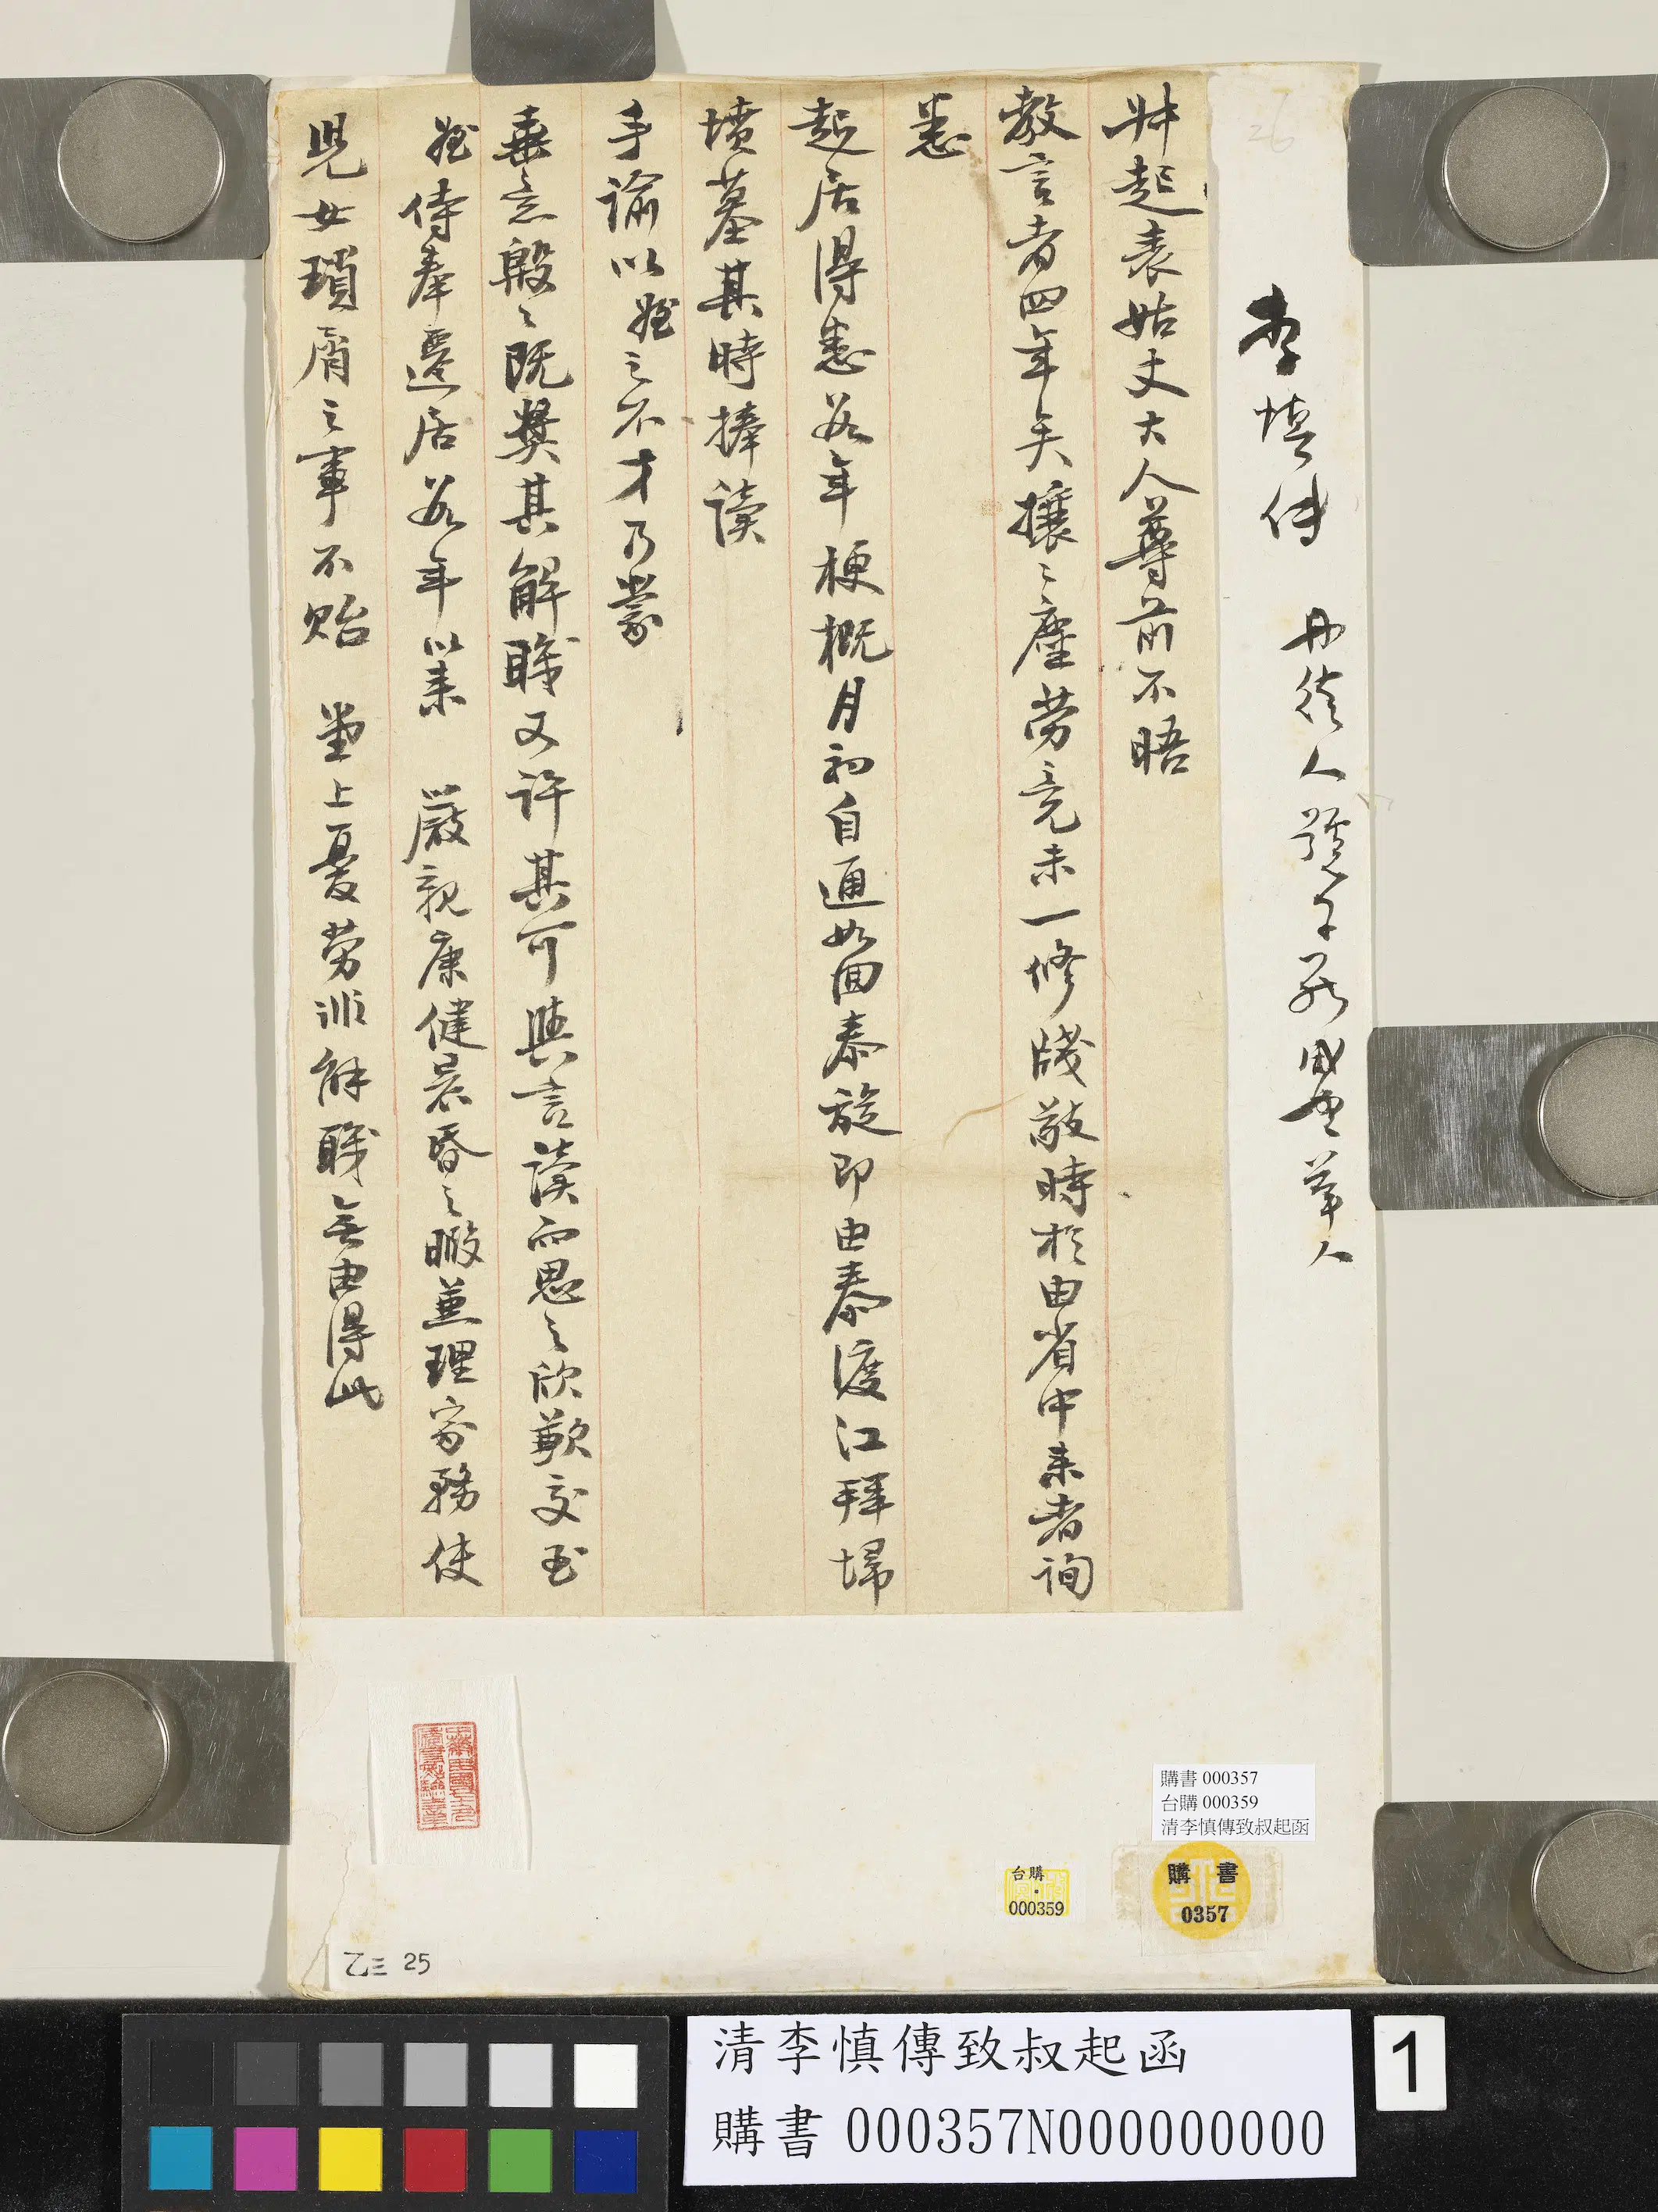 李慎傳 丹徒人號子 舉人
叔起表姑丈大人尊前不晤
教言者四年矣攘々塵勞竟未一修牋敬時於由省中來者詢
悉
起居得悉数年梗概月初自通如回泰旋即由泰渡江拜埽
墳墓其時捧讀
手諭以姪之不才乃蒙
垂念殷々既奬其解職又許其可與言讀而思之欣歉交至
姪侍奉遷居数年以來 嚴親康健晨昏之暇兼理家務使
兒女瑣屑之事不貽 堂上憂勞非解職無由得此
26
購書 000357
台購 000359
清李慎傳致叔起函
台購
000359
購 書
0357
乙三 25
清李慎傳致叔起函
購書 000357N000000000
1